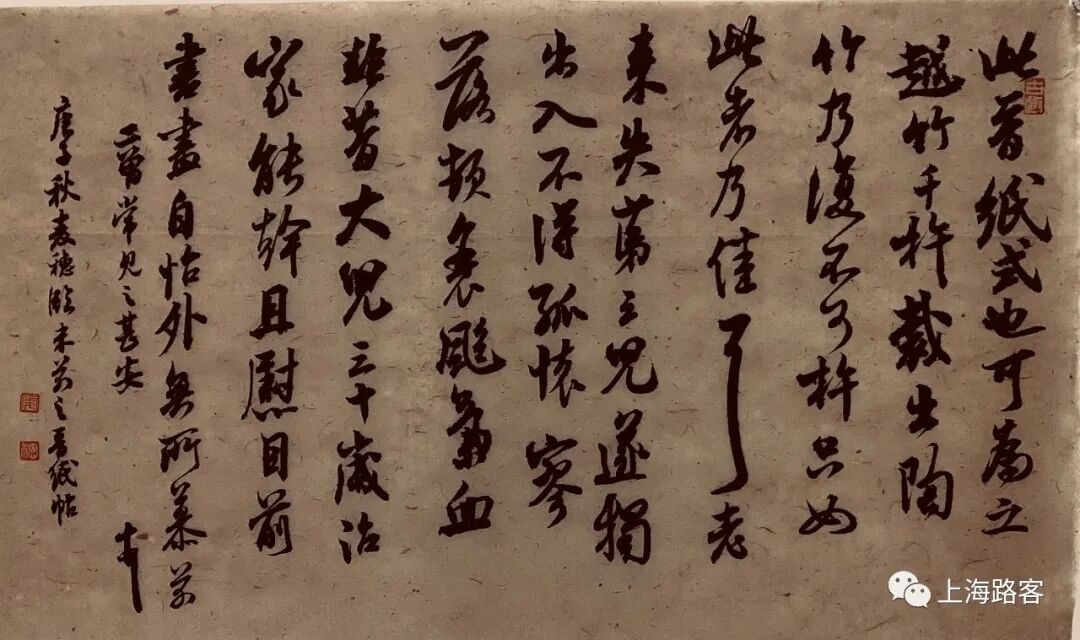 此晉紙式也可為立
越竹千杵裁出陶
竹乃復不可杵只如
此者乃佳耳老
來失第三兒遂獨
出入不得孤懷寥
落頓衰颯氣血
非昔大兒三十歲治
家能幹且慰目前
書畫自怡外無所慕芾
二曾常見之甚安 芾
庚子秋麦穗臨米芾之晉紙帖
上海路客